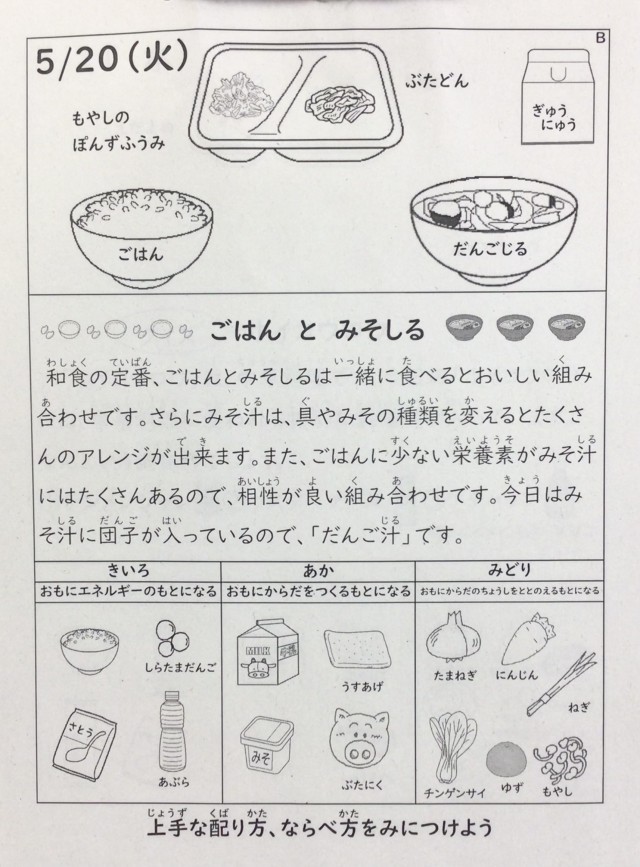 B
5/20(火)
ぶたどん
もやしの
ぽんずふうみ
ぎゅう
にゅう
ごはん
だんごじる
ごはん と みそしる
わしょく ていばん いっしょ た く
和食の定番、ごはんとみそしるは一緒に食べるとおいしい組み
あ しる ぐ しゅるい か
合わせです。さらにみそ汁は、具やみその種類を変えるとたくさ
で き すく えいようそ しる
んのアレンジが出来ます。また、ごはんに少ない栄養素がみそ汁
あいしょう よ く あ きょう
にはたくさんあるので、相性が良い組み合わせです。今日はみ
しる だんご はい じる
そ汁に団子が入っているので、「だんご汁」です。
きいろ あか みどり
おもにエネルギーのもとになる おもにからだをつくるもとになる おもにからだのちょうしをととのえるもとになる
しらたまだんご
さとう
あぶら
MILK
うすあげ
みそ
ぶたにく
たまねぎ
にんじん
ねぎ
チンゲンサイ
ゆず
もやし
じょうず くば かた かた
上手な配り方、ならべ方をみにつけよう